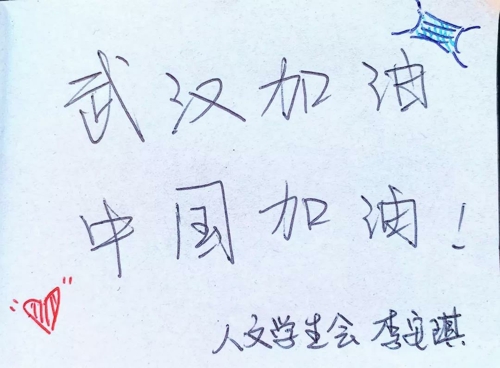 武汉加油
中国加油！
人文学生会 李安琪